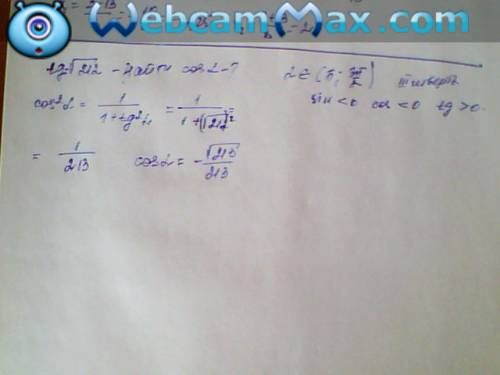 WebcamMax.com
tg = √212 - найти cos α - ?
α ∈ (π; 3π/2) III четверть
cos²α = 1/(1+tg²α) = 1/(1+(√212)²) =
sin < 0 cos < 0 tg > 0
= 1/213 cos α = -√213/213